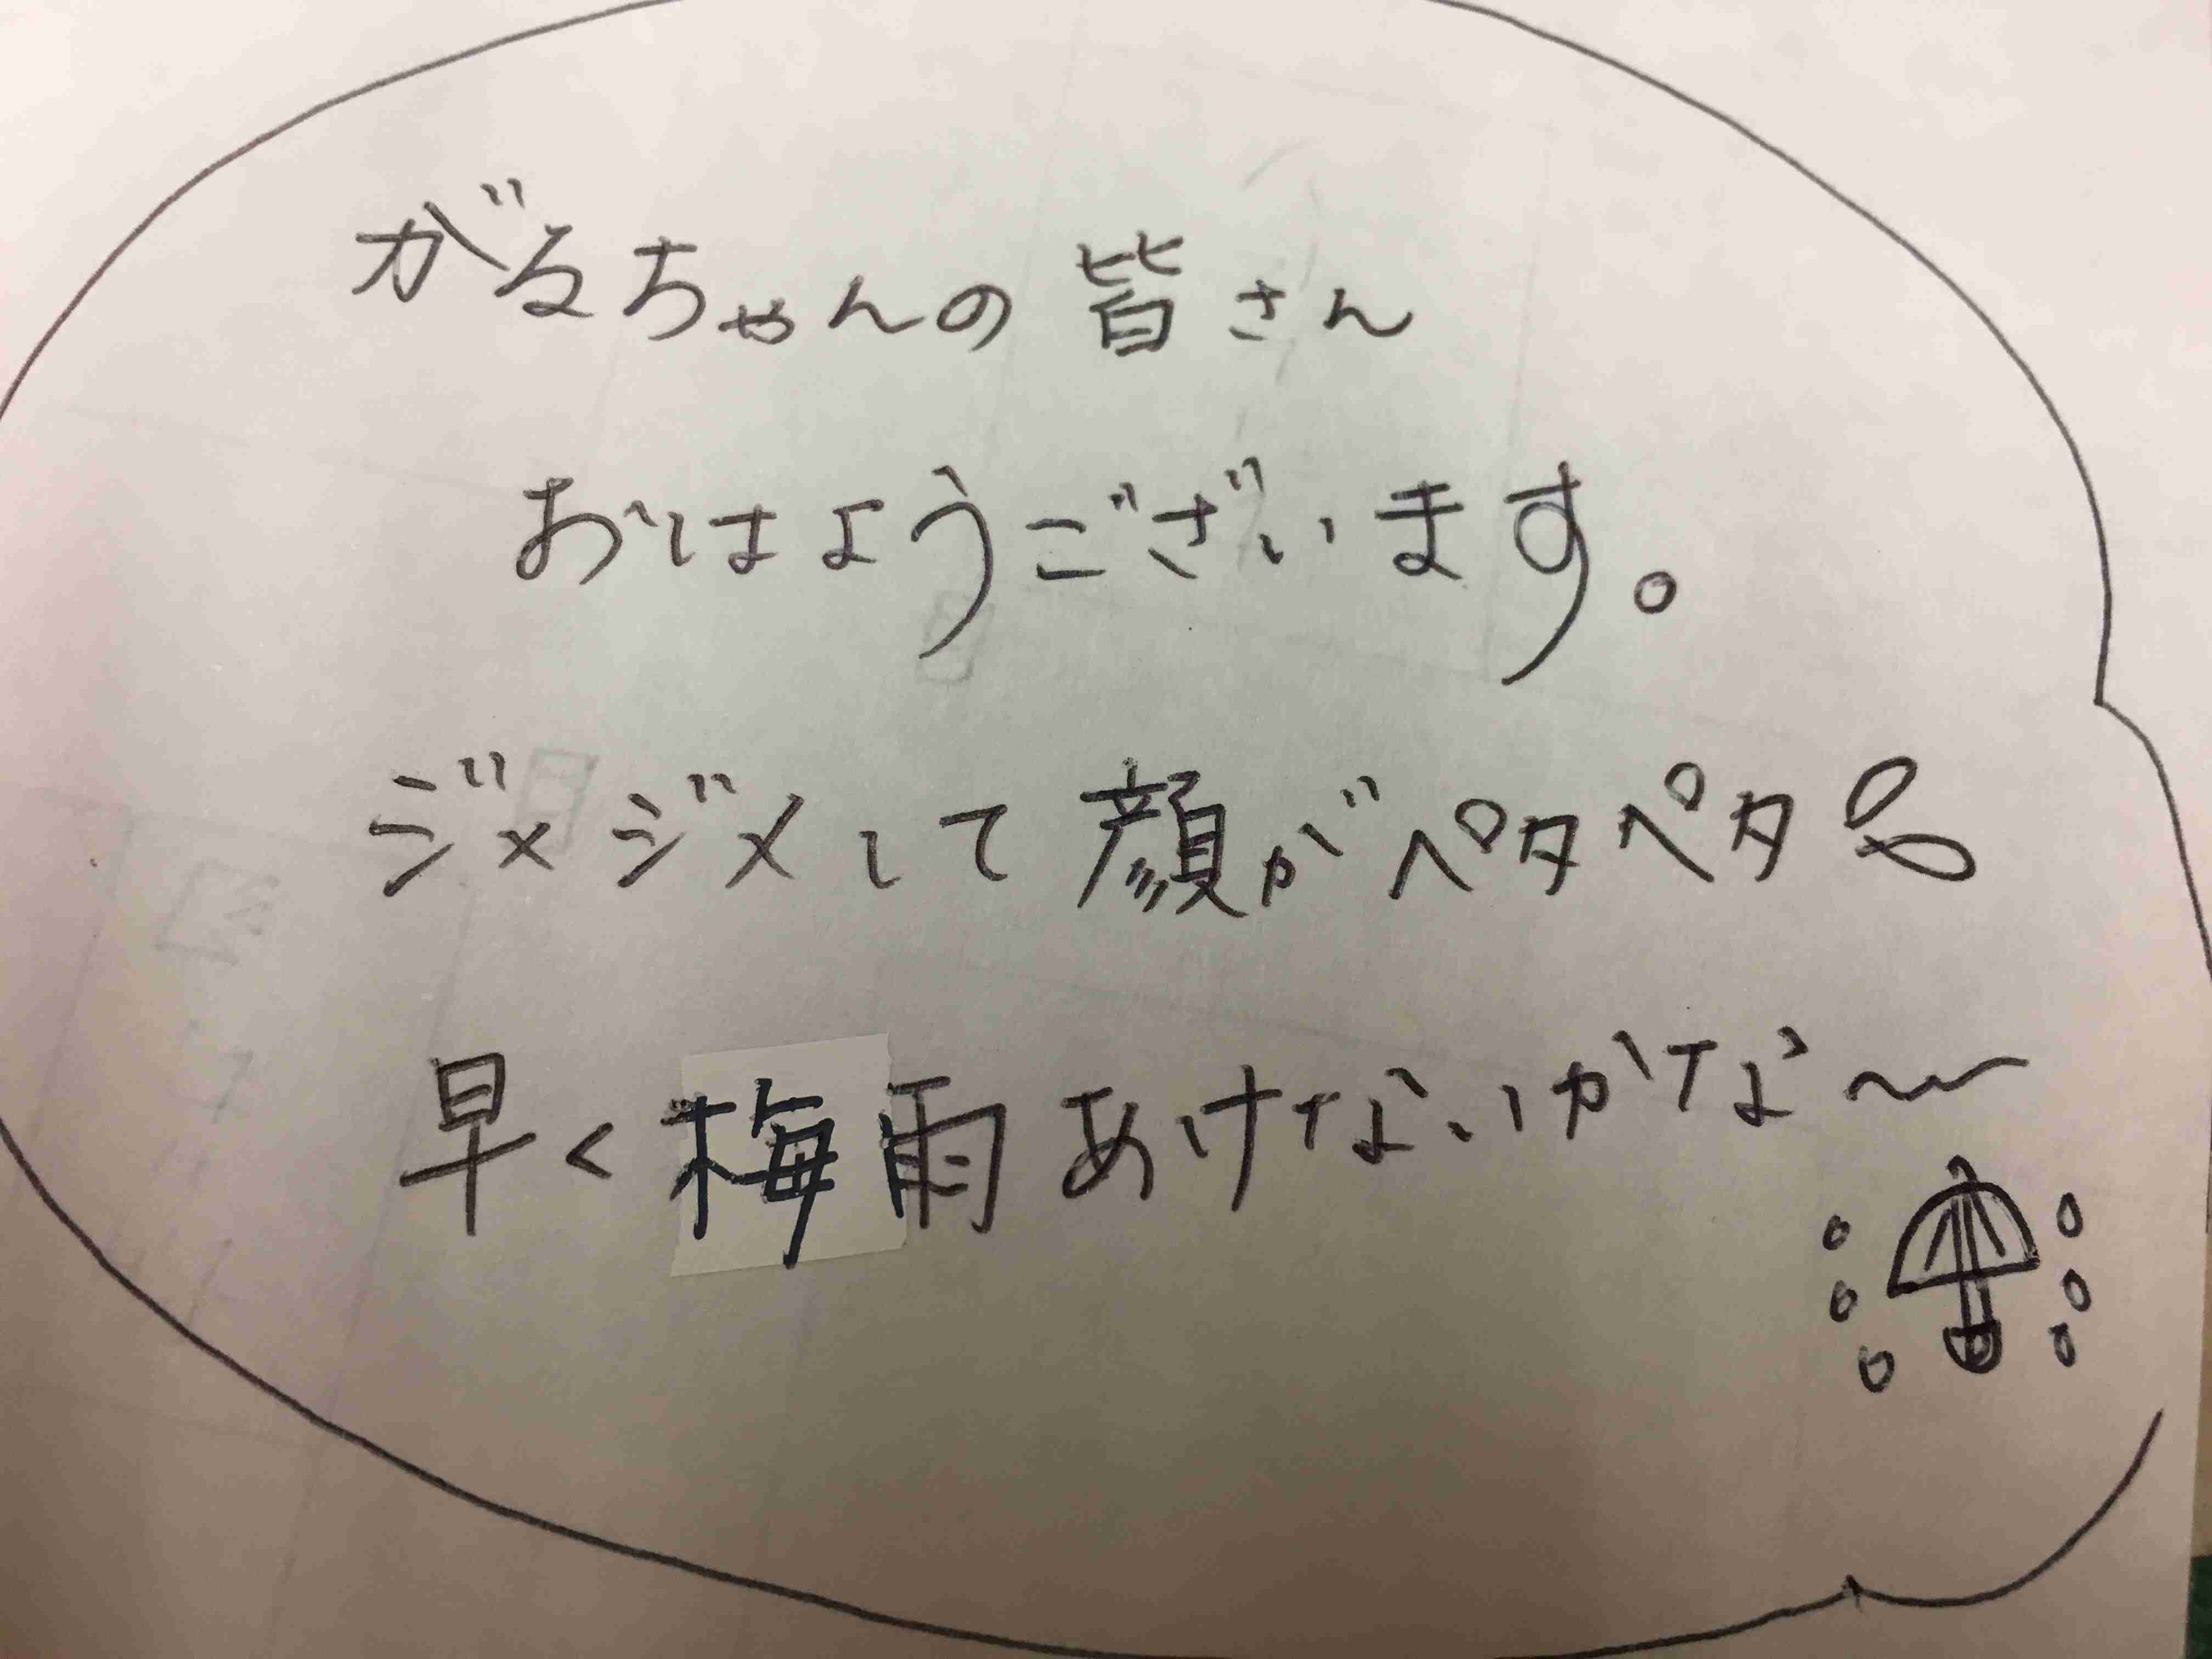 がるちゃんの皆さん
おはようございます。
ジメジメして顔がペタペタ
早く梅雨あけないかな〜